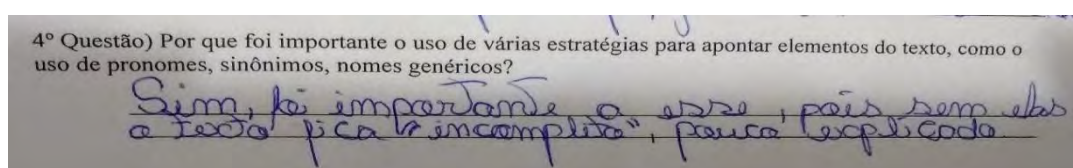 4º Questão) Por que foi importante o uso de várias estratégias para apontar elementos do texto, como o
uso de pronomes, sinônimos, nomes genéricos?
Sim, foi importante o esso, pois sem elas
o texto fica "incomplito", pouco explicado